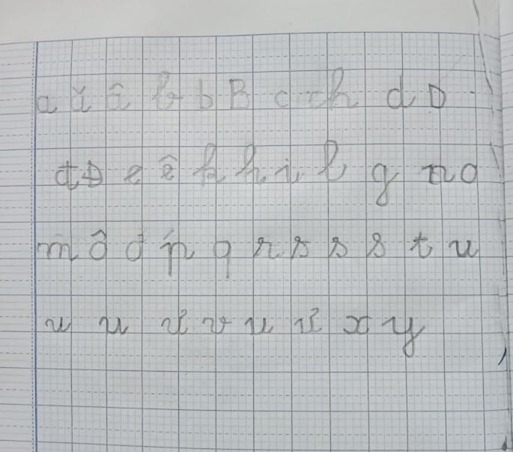 a ă â b b B c ch d D
đ Đ e ê h h i l g n g
m ô ơ p q r s s s t u
u u ư v u ư x y